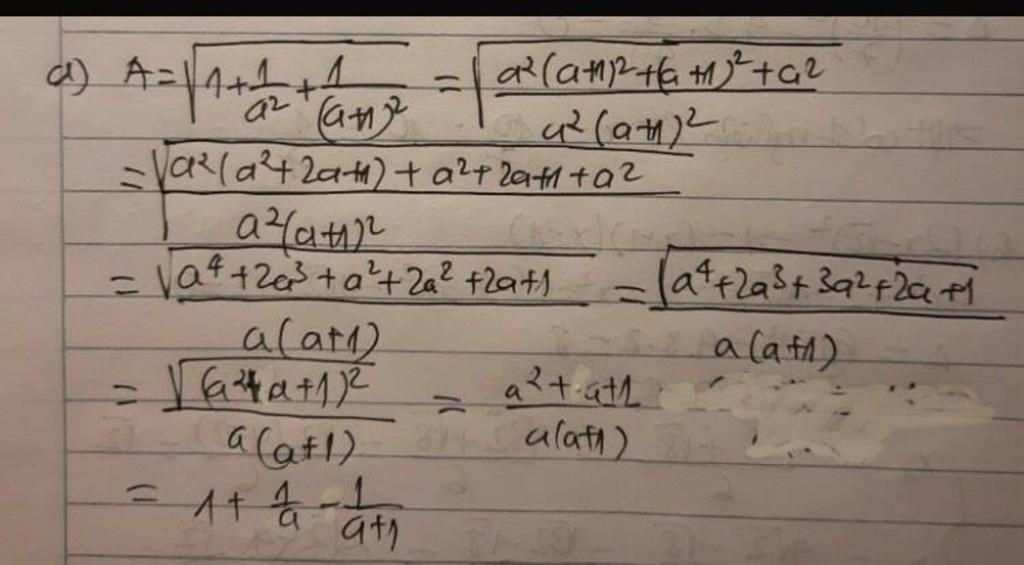 a) A = √(1 + 1/a² + 1/(a+1)²) = √((a²(a+1)² + (a+1)² + a²)/(a²(a+1)²))
= √((a²(a² + 2a + 1) + a² + 2a + 1 + a²)/(a²(a+1)²))
= √(a⁴ + 2a³ + a² + 2a² + 2a + 1)/(a(a+1)) = √(a⁴ + 2a³ + 3a² + 2a + 1)/(a(a+1))
= √((a² + a + 1)²)/(a(a+1)) = (a² + a + 1)/(a(a+1))
= 1 + 1/a - 1/(a+1)